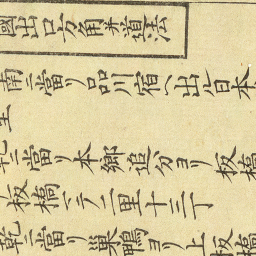 國出口方角并道法
南ニ當リ品川宿ヘ出ル日本
乾ニ當リ本郷追分ヨリ板橋
板橋ニテ二里十三丁
乾ニ當リ巣鴨ヨリ上板橋